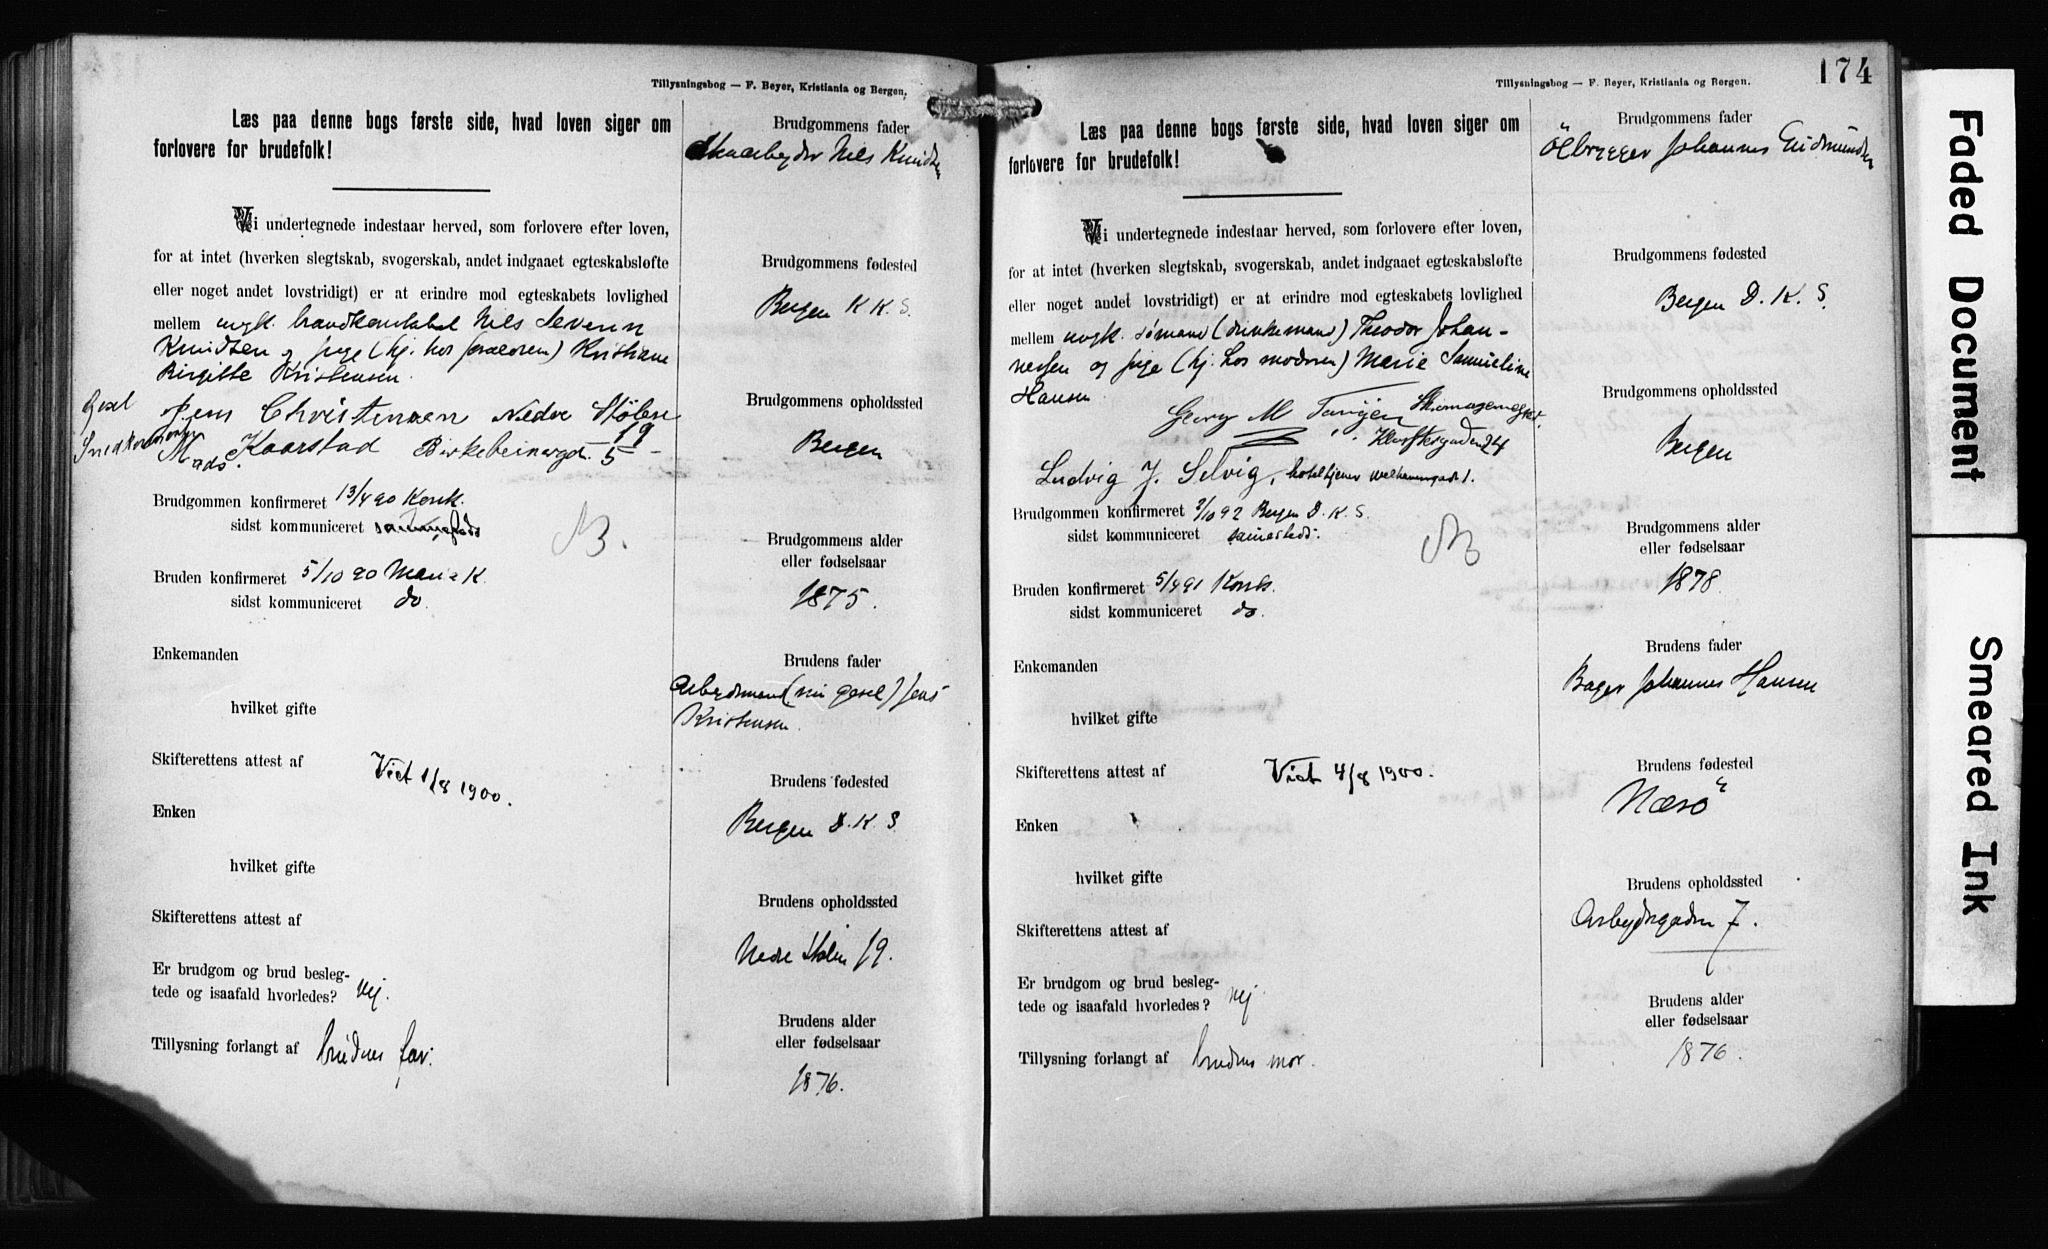 Tillysningsbog — F. Beyer, Kristiania og Bergen.
Læs paa denne bogs første side, hvad loven siger om
forlovere for brudefolk!
Vi undertegnede indestaar herved, som forlovere efter loven,
for at intet (hverken slegtskab, svogerskab, andet indgaaet egteskabsløfte
eller noget andet lovstridigt) er at erindre mod egteskabets lovlighed
mellem ungk. brandkonstabel Nils Severin
Knudsen og pige (hj. hos forældrene) Kristiane
Birgitte Kristensen.
Gesel Jens Christensen Nedre Stølen 19
Mads Kaarstad Birkebeinergd. 5
Brudgommen konfirmeret 13/4 90 Korsk.
sidst kommuniceret sammesteds
NB.
Bruden konfirmeret 5/10 90 Marie K.
sidst kommuniceret do
Enkemanden
hvilket gifte
Skifterettens attest af
Viet 1/8 1900.
Enken
hvilket gifte
Skifterettens attest af
Er brudgom og brud besleg-
tede og isaafald hvorledes? Nej.
Tillysning forlangt af brudens far.
Brudgommens fader
Skoarbeyder Nils Knudsen
Brudgommens fødested
Bergen K. K. S.
Brudgommens opholdssted
Bergen
Brudgommens alder
eller fødselsaar
1875.
Brudens fader
Arbeydsmand (nu gesel) Jens
Kristensen
Brudens fødested
Bergen D. K. S.
Brudens opholdssted
Nedre Stølen 19.
Brudens alder
eller fødselsaar
1876.
174
Tillysningsbog — F. Beyer, Kristiania og Bergen.
Læs paa denne bogs første side, hvad loven siger om
forlovere for brudefolk!
Vi undertegnede indestaar herved, som forlovere efter loven,
for at intet (hverken slegtskab, svogerskab, andet indgaaet egteskabsløfte
eller noget andet lovstridigt) er at erindre mod egteskabets lovlighed
mellem ungk. sømand (dunkemand) Theodor Johan-
nessen og pige (hj. hos moderen) Marie Samueline
Hansen
Georg M Tangen Skomagermester
24
Ludvig J. Selvig, hoteltjener Welhavensgade 1.
Brudgommen konfirmeret 2/10 92 Bergen D. K. S.
sidst kommuniceret samesteds.
NB
Bruden konfirmeret 5/4 91 Korsk.
sidst kommuniceret do.
Enkemanden
hvilket gifte
Skifterettens attest af
Viet 4/8 1900.
Enken
hvilket gifte
Skifterettens attest af
Er brudgom og brud besleg-
tede og isaafald hvorledes? Nej
Tillysning forlangt af brudens mor.
Brudgommens fader
Ølbrygger Johannes Gudmundsen
Brudgommens fødested
Bergen D. K. S.
Brudgommens opholdssted
Bergen
Brudgommens alder
eller fødselsaar
1878.
Brudens fader
Bager Johannes Hansen
Brudens fødested
Næsø
Brudens opholdssted
Arbeydergaden 7.
Brudens alder
eller fødselsaar
1876.
Faded Document
Smeared Ink